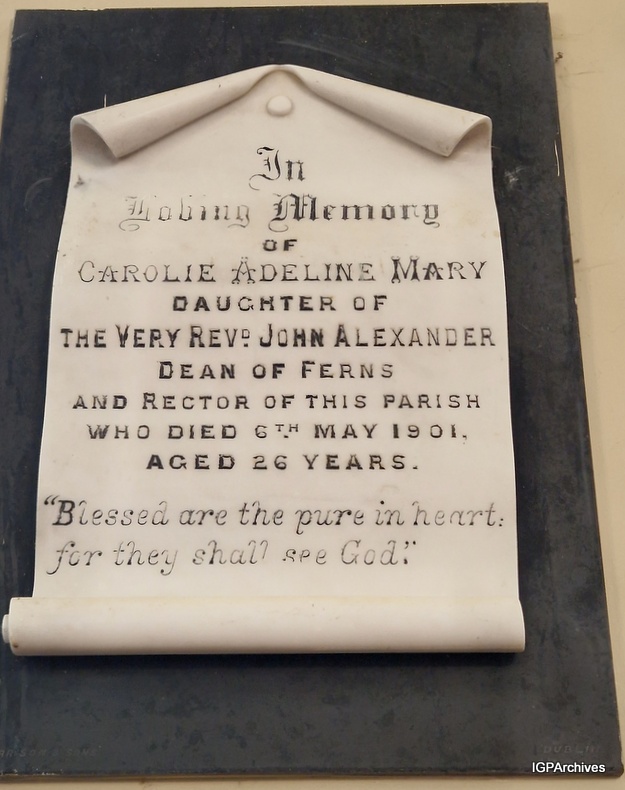 In
Loving Memory
OF
CAROLIE ADELINE MARY
DAUGHTER OF
THE VERY REVD JOHN ALEXANDER
DEAN OF FERNS
AND RECTOR OF THIS PARISH
WHO DIED 6TH MAY 1901,
AGED 26 YEARS.
"Blessed are the pure in heart:
for they shall see God."
DUBLIN
IGPArchives